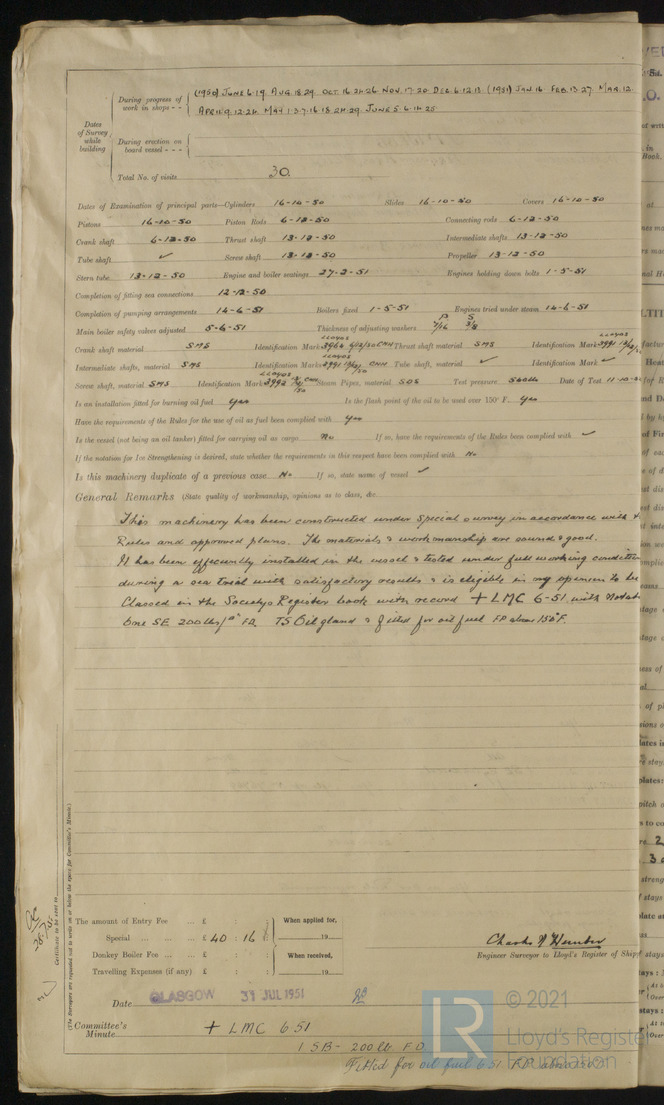 During progress of work in shops - - (1950) JUNE 6.19. AUG. 18 29. OCT. 16 24 26 NOV. 17. 20 DEC. 6. 12. 13. (1951) JAN 16 FEB. 13 27. MAR. 12.
APR 11. 9. 12. 24. MAY 1. 3. 7. 16. 18. 24. 29. JUNE 5. 6. 14 25
Dates of Survey while building
During erection on board vessel - - -
Total No. of visits 30.
Dates of Examination of principal parts—Cylinders 16-10-50 Slides 16-10-50 Covers 16-10-50
Pistons 16-10-50 Piston Rods 6-12-50 Connecting rods 6-12-50
Crank shaft 6-12-50 Thrust shaft 13-12-50 Intermediate shafts 13-12-50
Tube shaft ✓ Screw shaft 13-12-50 Propeller 13-12-50
Stern tube 13-12-50 Engine and boiler seatings 27-2-51 Engines holding down bolts 1-5-51
Completion of fitting sea connections 12-12-50
Completion of pumping arrangements 14-6-51 Boilers fixed 1-5-51 Engines tried under steam 14-6-51
Main boiler safety valves adjusted 5-6-51 Thickness of adjusting washers P 7/16 S 3/8
Crank shaft material SMS Identification Mark LLOYDS 3966 6/12/50 CNH Thrust shaft material SMS Identification Mark LLOYDS 3991
Intermediate shafts, material SMS Identification Marks LLOYDS 3991 CNH Tube shaft, material ✓ Identification Mark ✓
Screw shaft, material SMS Identification Mark LLOYDS 3992 CNH Steam Pipes, material SDS Test pressure Date of Test 11-10-
Is an installation fitted for burning oil fuel Yes Is the flash point of the oil to be used over 150° F. Yes
Have the requirements of the Rules for the use of oil as fuel been complied with Yes
Is the vessel (not being an oil tanker) fitted for carrying oil as cargo No If so, have the requirements of the Rules been complied with ✓
If the notation for Ice Strengthening is desired, state whether the requirements in this respect have been complied with No
Is this machinery duplicate of a previous case No If so, state name of vessel ✓
General Remarks (State quality of workmanship, opinions as to class, &c.
This machinery has been constructed under Special survey in accordance with
Rules and approved plans. The materials & workmanship are sound & good.
It has been efficiently installed in the vessel & tested under full working condition
during a sea trial with satisfactory results & is eligible in my opinion to be
Classed in the Societys Register book with record + LMC 6-51 with notat
One SE 200 lbs/□" FD. TS Oil gland & fitted for oil fuel FP above 150°F.
The amount of Entry Fee ... £ : :
Special ... ... £ 40 : 16 :
Donkey Boiler Fee ... £ : :
Travelling Expenses (if any) £ : :
When applied for,
19
When received,
19
Charles N Hunter
Engineer Surveyor to Lloyd's Register of Ship
Date GLASGOW 31 JUL 1951
Committee's Minute + LMC 6 51
1 SB - 200 lb. F D
Fitted for oil fuel 6 51 F.P. above 150°F
(The Surveyors are requested not to write on or below the space for Committee's Minute.)
Certificate to be sent to
© 2021
Lloyd's Register
Foundation